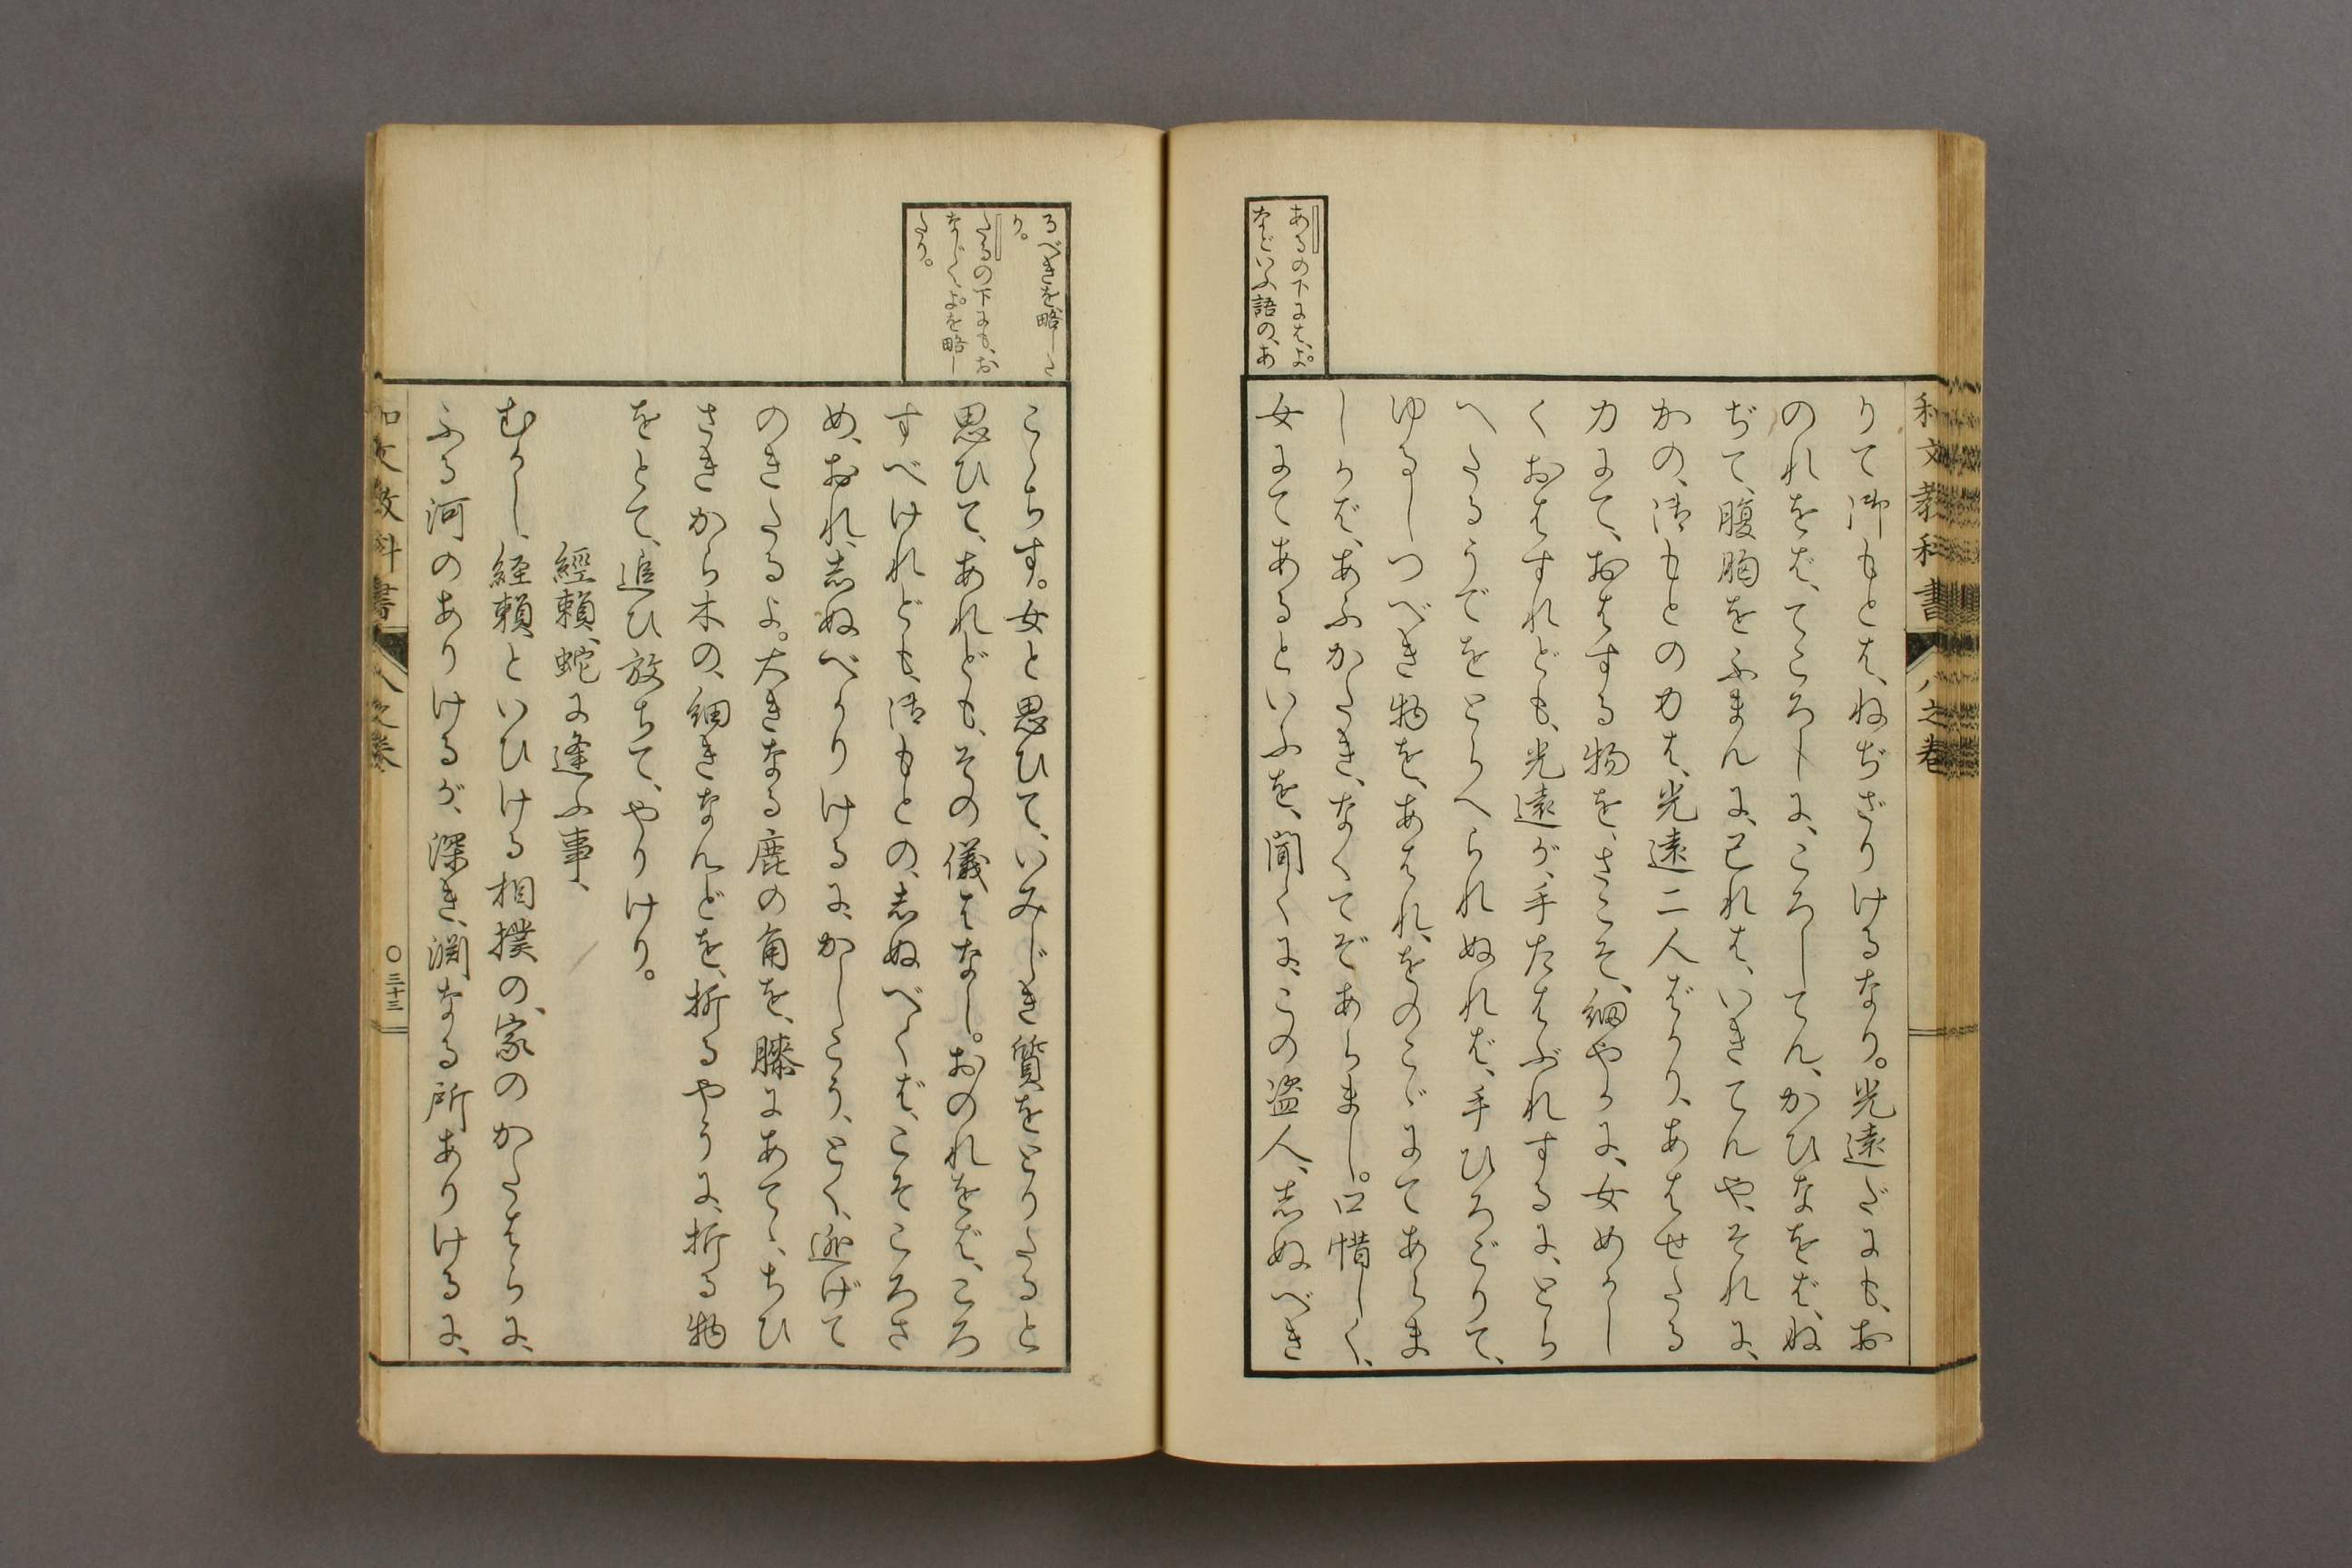 和文教科書 八之卷
あるの下には、よ
などいふ語の、あ
りて御もとは、ねぢざりけるなり。光遠だにも、お
のれをば、てころしに、ころしてん、かひなをば、ね
ぢて、腹胸をふまんに、己れは、いきてんや、それに、
かの、御もとの力は、光遠二人ばかり、あはせたる
力にて、おはする物を、さこそ、細やかに、女めかし
くおはすれども、光遠が、手たはぶれするに、とら
へたるうでをとらへられぬれば、手ひろごりて、
ゆるしつべき物を、あはれ、をのこゞにてあらま
しかば、あふかたき、なくてぞあらまし。口惜しく、
女にてあるといふを、聞くに、この盗人、志ぬべき
るべきを略した
り。
たるの下にも、お
なじく、よを略し
たり。
こゝちす。女と思ひて、いみじき質をとりたると
思ひて、あれども、その儀はなし。おのれをば、ころ
すべけれども、御もとの、志ぬべくば、こそころさ
め、おれ、志ぬべかりけるに、かしこう、とく、逃げて
のきたるよ。大きなる鹿の角を、膝にあてゝ、ちひ
さきから木の、細きなんどを、折るやうに、折る物
をとて、追ひ放ちて、やりけり。
經賴、蛇に逢ふ事、
むかし、経賴といひける相撲の、家のかたはらに、
ふる河のありけるが、深き、渕なる所ありけるに、
和文教科書 八之卷 〇三十三